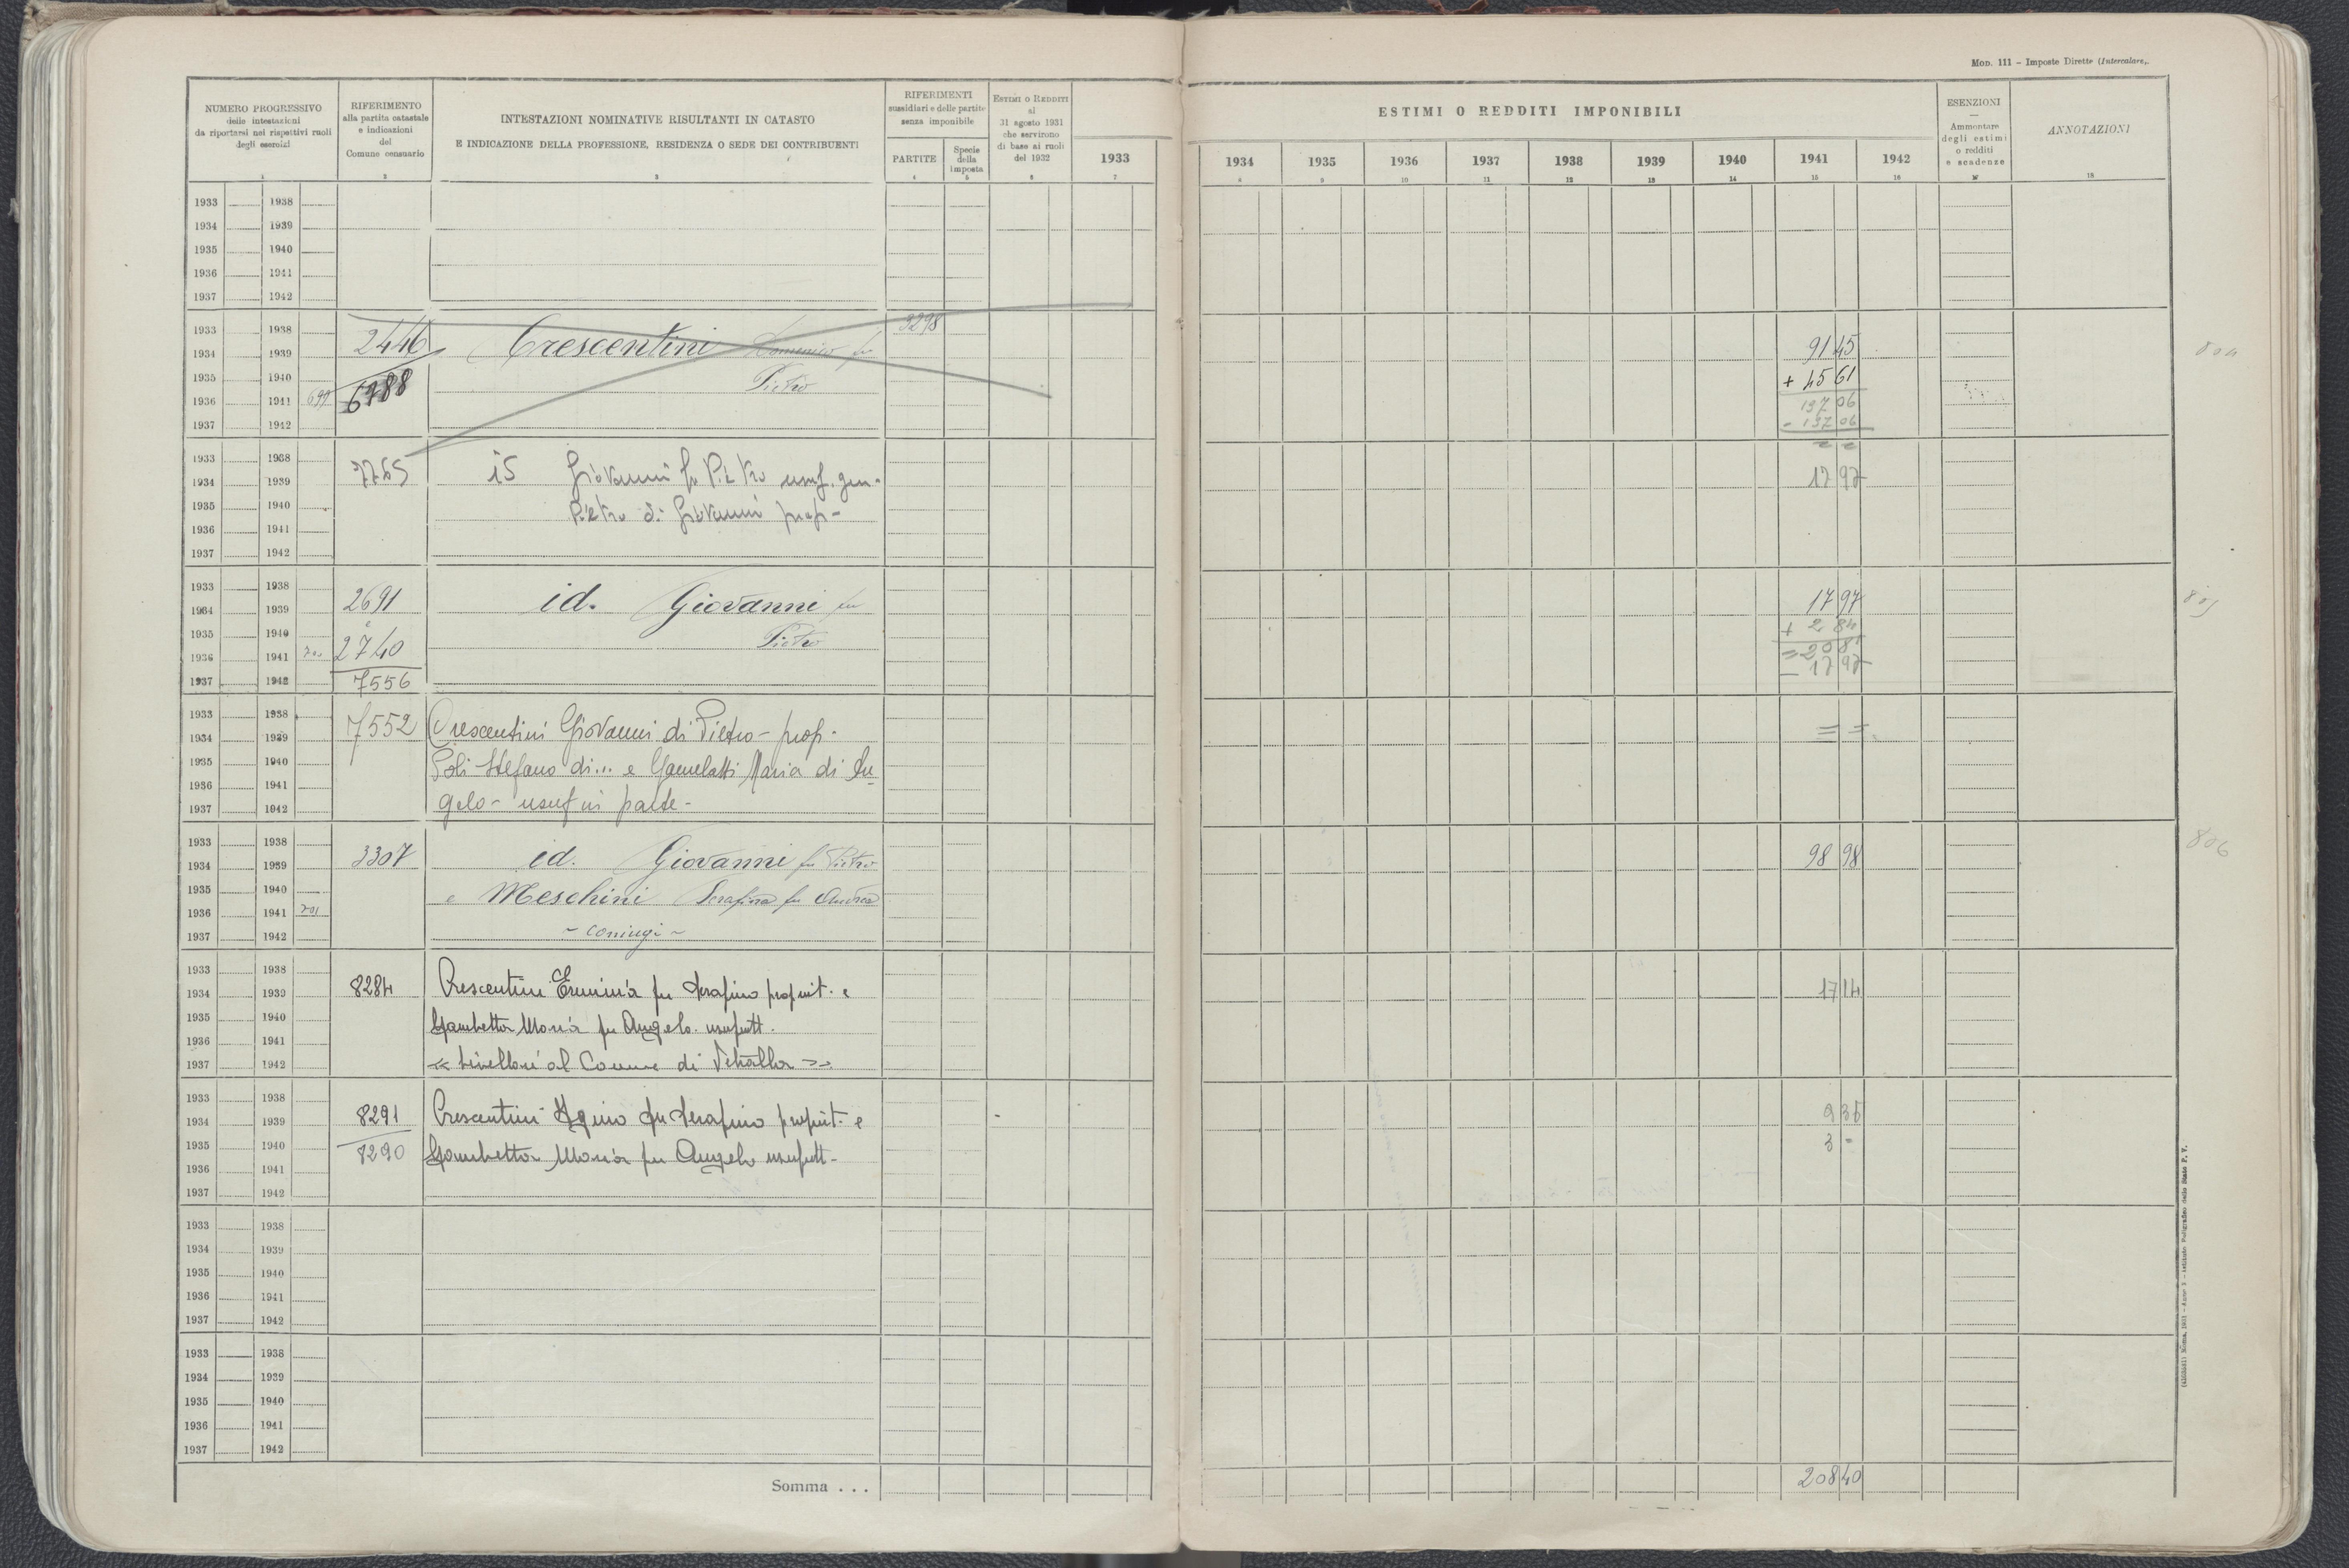 Mod. 111 – Imposte Dirette (Intercalare).
NUMERO PROGRESSIVO
delle intestazioni
da riportarsi nei rispettivi ruoli
degli esercizi
1
RIFERIMENTO
alla partita catastale
e indicazioni
del
Comune censuario
2
INTESTAZIONI NOMINATIVE RISULTANTI IN CATASTO
E INDICAZIONE DELLA PROFESSIONE, RESIDENZA O SEDE DEI CONTRIBUENTI
3
RIFERIMENTI
sussidiari e delle partite
senza imponibile
PARTITE
4
Specie
della
imposta
5
ESTIMI O REDDITI
al
31 agosto 1931
che servirono
di base ai ruoli
del 1932
6
ESTIMI O REDDITI IMPONIBILI
1933 1934 1935 1936 1937 1938 1939 1940 1941 1942
7 8 9 10 11 12 13 14 15 16
ESENZIONI
—
Ammontare
degli estimi
o redditi
e scadenze
17
ANNOTAZIONI
18
1933 1938
1934 1939
1935 1940
1936 1941
1937 1942
1933 1938 2446 3298
1934 1939 Crescentini Domenico fu 91 45 804
1935 1940 Pietro + 45 61
1936 1941 699 6788 137 06
1937 1942 - 137 06
= =
1933 1938 7765 Giovanni fu Pietro usuf. gen. 17 97
1934 1939 Pietro di Giovanni prop-
1935 1940
1936 1941
1937 1942
1933 1938 2691 id. Giovanni fu 17 97 805
1934 1939 Pietro + 2 84
1935 1940 2740 = 20 81
1936 1941 700 - 17 97
1937 1942 7556
1933 1938 7552 Crescentini Giovanni di Pietro - prop. = =
1934 1939 Poli Stefano di... e Maria di An-
1935 1940 gelo - usuf in parte -
1936 1941
1937 1942
1933 1938 3307 id. Giovanni fu Pietro 98 98 806
1934 1939 e Meschini Serafina fu Andrea
1935 1940 - coniugi -
1936 1941 701
1937 1942
1933 1938 8284 Crescentini Erminia fu Serafino propriet. e 17 14
1934 1939 Gambetta Maria fu Angelo usufrutt.
1935 1940 << Livellari al Comune di Vetralla >>
1936 1941
1937 1942
1933 1938 8291 Crescentini Igino fu Serafino propriet. e 9 35
1934 1939 8290 Gambetta Maria fu Angelo usufrutt- 3 -
1935 1940
1936 1941
1937 1942
1933 1938
1934 1939
1935 1940
1936 1941
1937 1942
1933 1938
1934 1939
1935 1940
1936 1941
1937 1942
Somma . . . 208 40